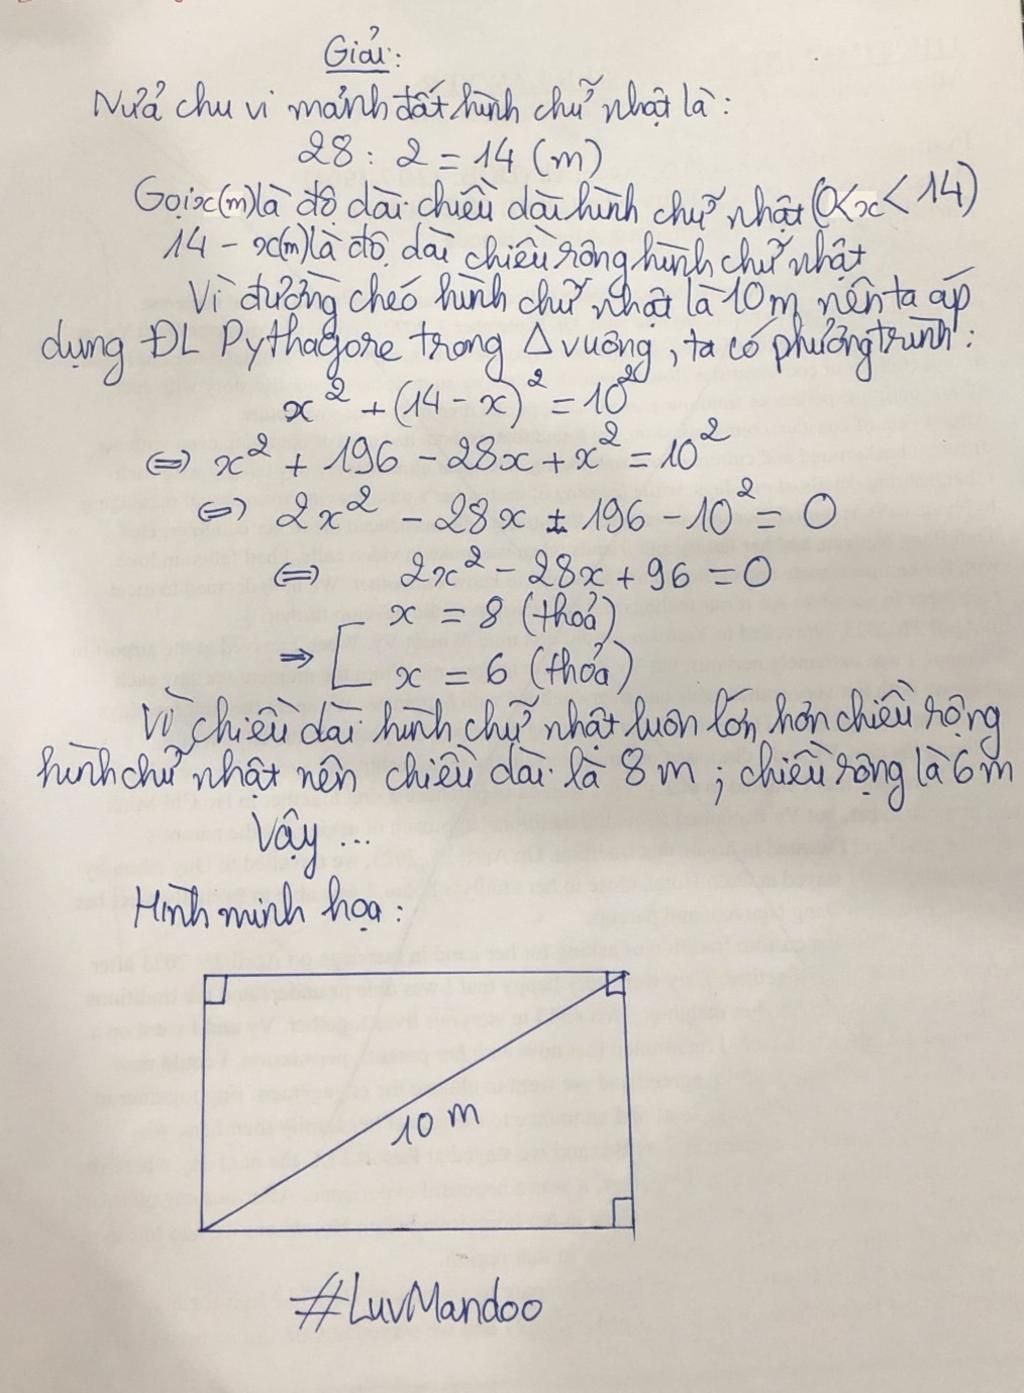 Giải:
Nửa chu vi mảnh đất hình chữ nhật là:
28 : 2 = 14 (m)
Gọi x(m) là độ dài chiều dài hình chữ nhật (0<x<14)
14 - x(m) là độ dài chiều rộng hình chữ nhật
Vì đường chéo hình chữ nhật là 10m nên ta áp
dụng ĐL Pythagore trong Δ vuông, ta có phương trình:
x² + (14 - x)² = 10²
⇔ x² + 196 - 28x + x² = 10²
⇔ 2x² - 28x + 196 - 10² = 0
⇔ 2x² - 28x + 96 = 0
⇒ [ x = 8 (thoả)
x = 6 (thỏa)
Vì chiều dài hình chữ nhật luôn lớn hơn chiều rộng
hình chữ nhật nên chiều dài là 8 m ; chiều rộng là 6 m
Vậy ...
Hình minh họa :
10 m
#LuvMandoo